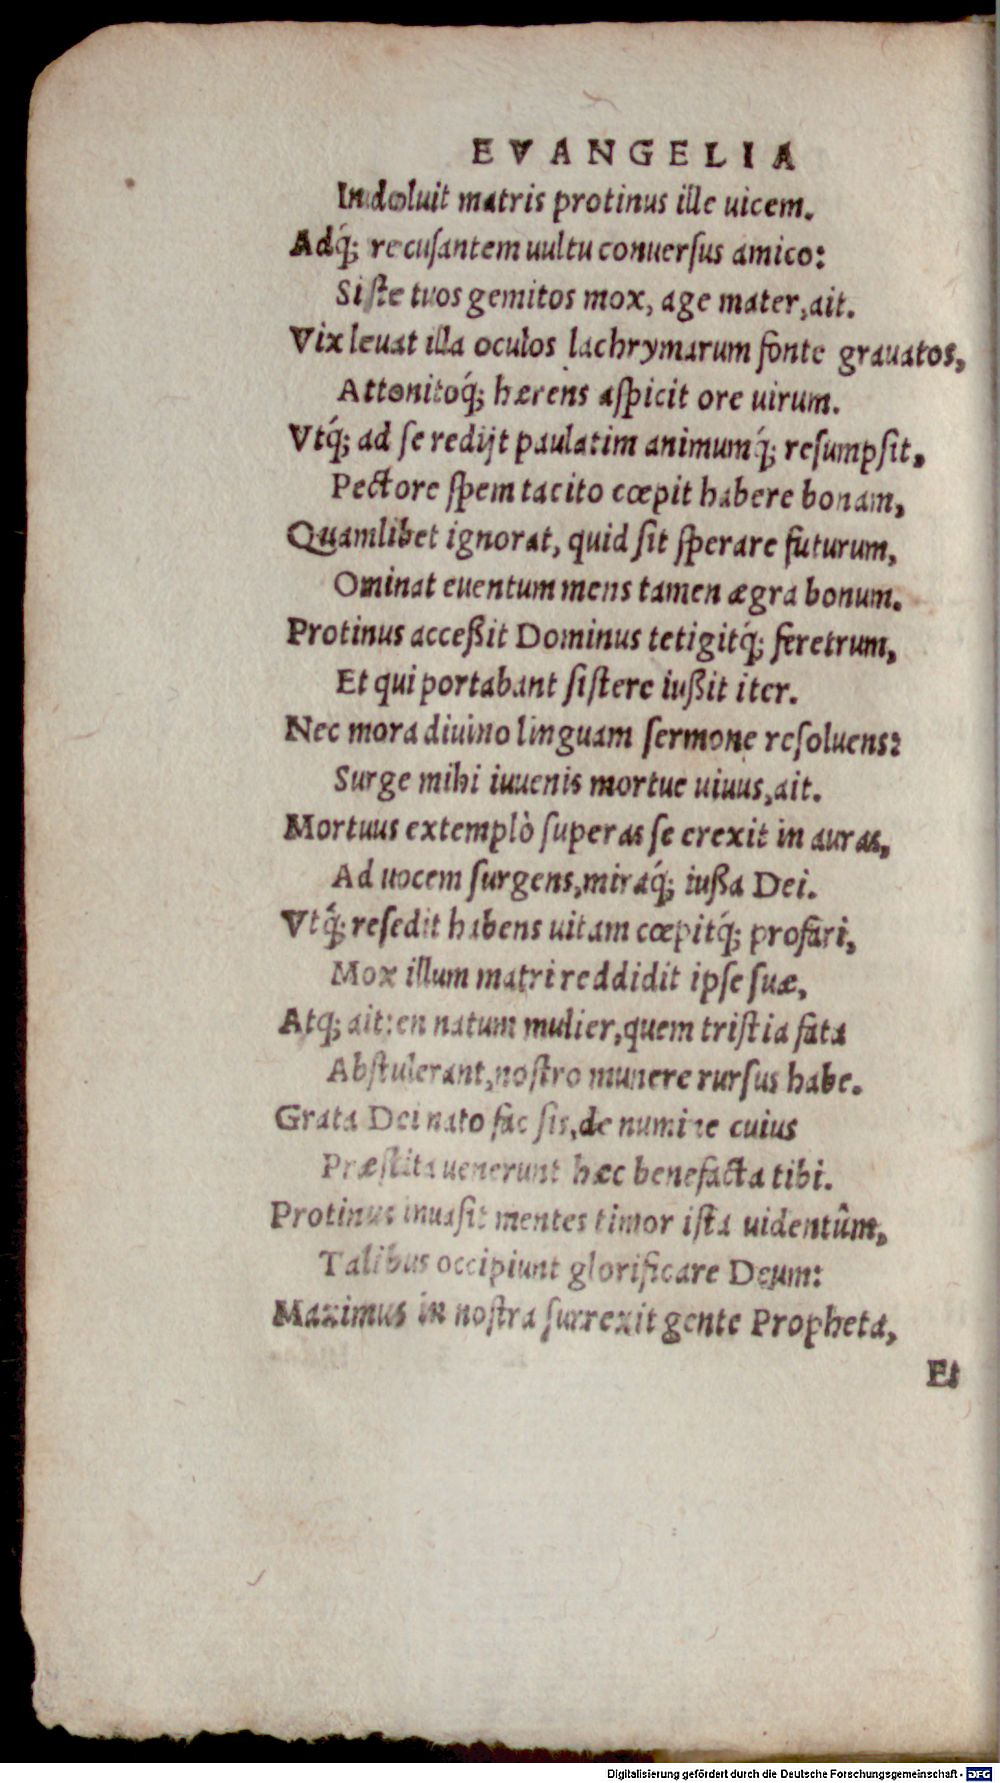 EVANGELIA
Indoluit matris protinus ille uicem.
Adq́; recuſantem uultu conuerſus amico:
Siſte tuos gemitos mox, age mater, ait.
Vix leuat illa oculos lachrymarum fonte grauatos,
Attonitoq́; hærens aſpicit ore uirum.
Vtq́; ad ſe redijt paulatim animumq́; reſumpſit,
Pectore ſpem tacito cœpit habere bonam,
Quamlibet ignorat, quid ſit ſperare futurum,
Ominat euentum mens tamen ægra bonum.
Protinus acceßit Dominus tetigitq́; feretrum,
Et qui portabant ſiſtere iußit iter.
Nec mora diuino linguam ſermone reſoluens:
Surge mihi iuuenis mortue uiuus, ait.
Mortuus extemplò ſuperas ſe erexit in auras,
Ad uocem ſurgens, miraq́; iußa Dei.
Vtq́; reſedit habens uitam cœpitq́; profari,
Mox illum matri reddidit ipſe ſuæ,
Atq; ait: en natum mulier, quem triſtia fata
Abſtulerant, noſtro munere rurſus habe.
Grata Dei nato fac ſis, de numine cuius
Præſtita uenerunt hæc benefacta tibi.
Protinus inuaſit mentes timor iſta uidentûm,
Talibus occipiunt glorificare Deum:
Maximus in noſtra ſurrexit gente Propheta,
Et
Digitalisierung gefördert durch die Deutsche Forschungsgemeinschaft - DFG